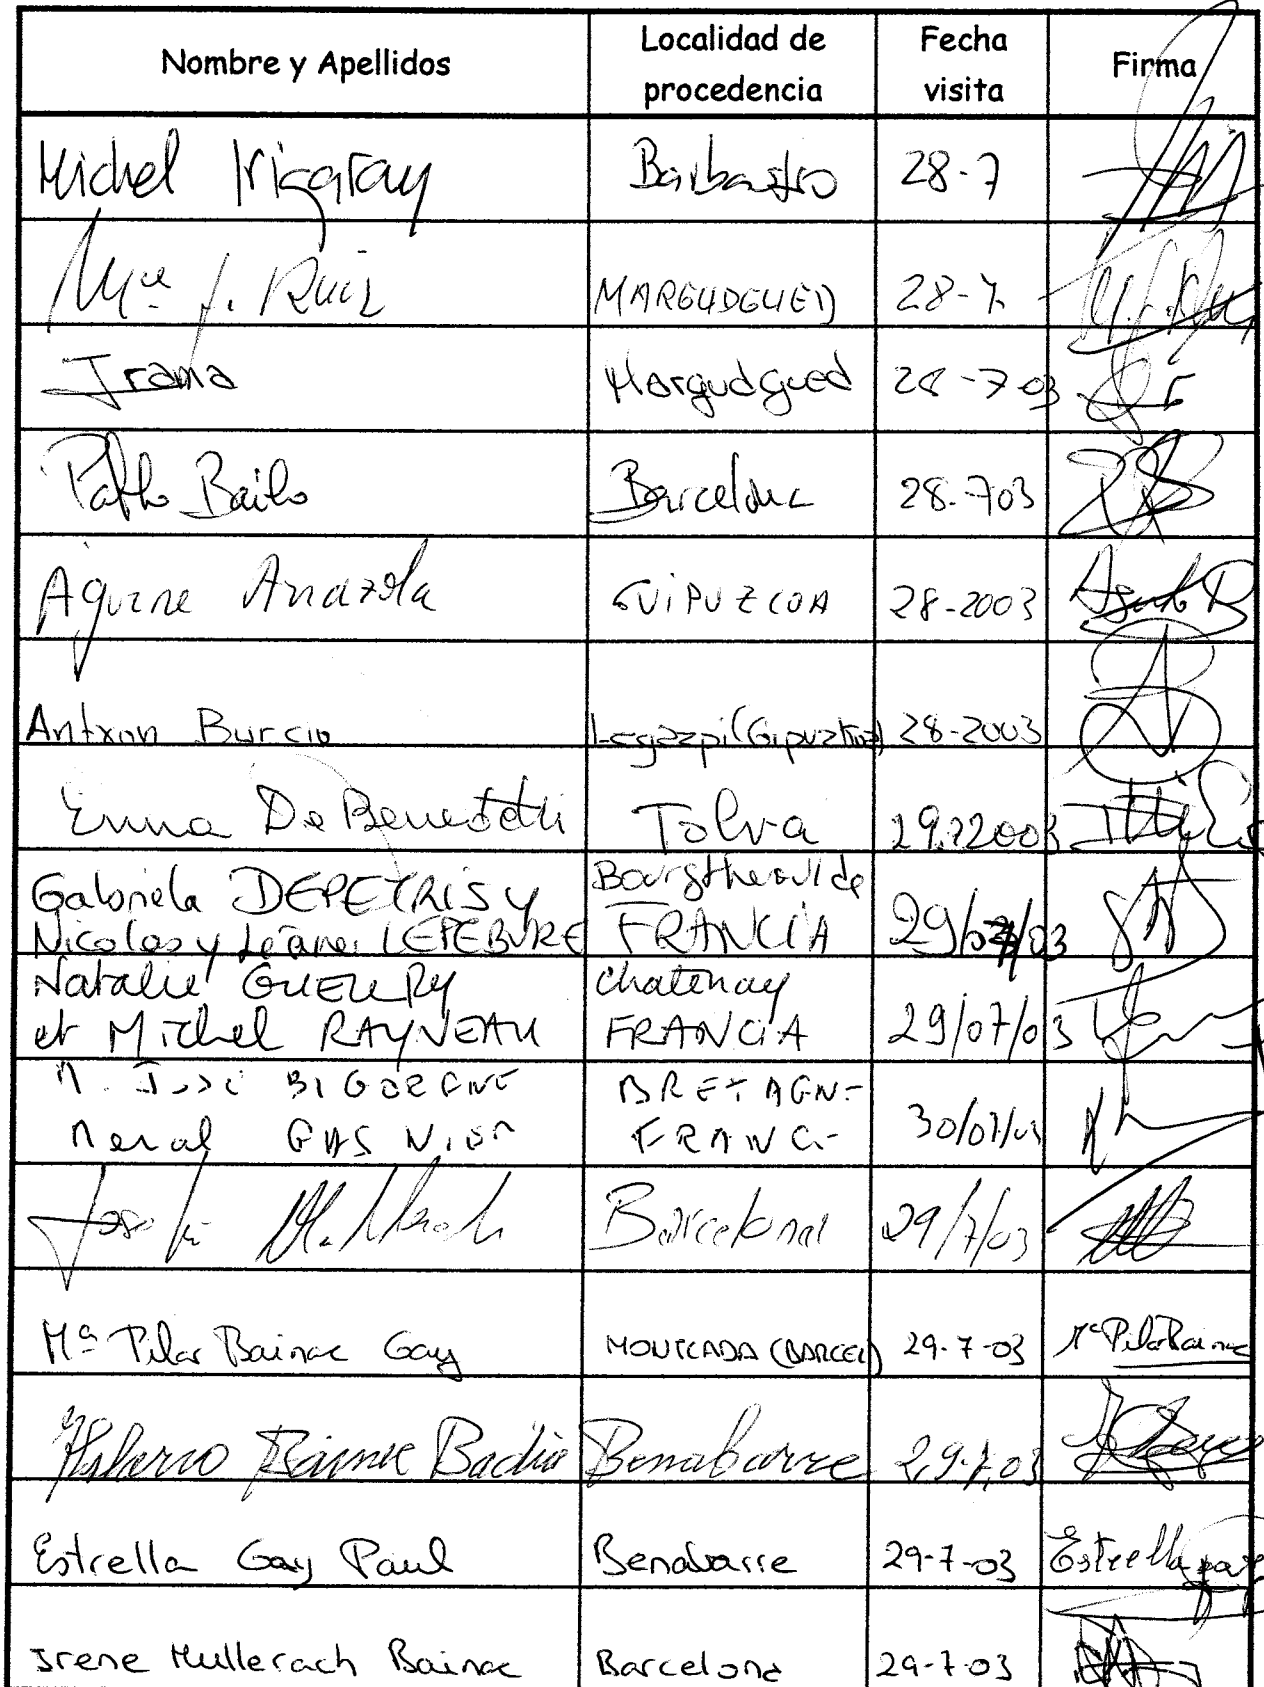 Nombre y Apellidos Localidad de procedencia Fecha visita Firma
Michel Irigaray Barbastro 28-7
Mª J. Ruiz MARGUDGUED 28-7
Irama Margudgued 28-7-03
Pablo Bailo Barcelona 28-703
Aguirre Arrazola GUIPUZCOA 28-2003
Antxon Burcio Legazpi (Gipuzkoa) 28-2003
Emma De Benedetti Tolva 29.72003
Gabriela DEPETRIS y Bourgtheroulde
Nicolas y LEFEBVRE FRANCIA 29/07/03
Natalie GUEURY Chatenay
et Michel RAYNEAU FRANCIA 29/07/03
M. José BRETAGNE
FRANCE 30/07/03
Barcelona 29/7/03
Mª Pilar Bainac Gay MONTCADA (BARCEL) 29-7-03 Mª Pilar Bainac
Bainac Badia Benabarre 29.7.03
Estrella Gay Paul Benabarre 29-7-03 Estrella gay
Irene Mullerach Bainac Barcelona 29-7-03